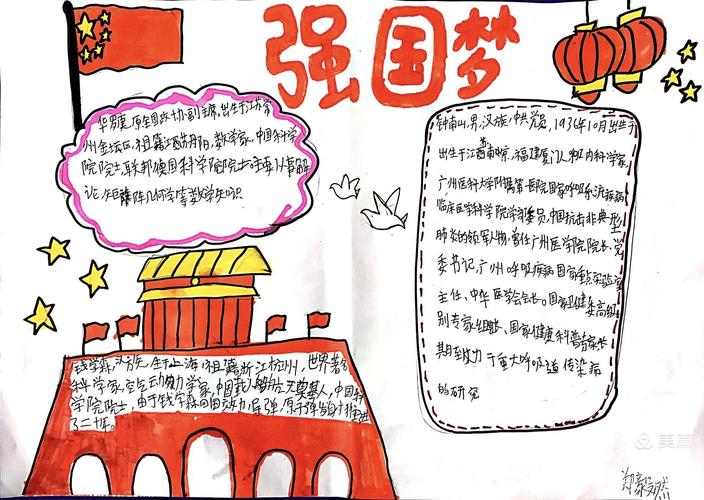 强国梦
华罗庚,原全国政协副主席。出生于江苏常
州金坛区,祖籍江苏丹阳,数学家,中国科学
院院士,联邦德国科学院院士
论、矩阵几何学等数学知识
钟南山,男,汉族,中共党员,1936年10月出生于
出生于江苏南京,福建厦门人,呼吸内科学家,
广州医科大学附属第一医院国家呼吸系统疾病
临床医学科学院学委员,中国抗击非典型
肺炎的领军人物,曾任广州医学院院长、党
委书记,广州呼吸疾病国家重点实验室
主任、中华医学会会长。国家卫健委高级
别专家组组长、国家健康科普专家
期致力于重大呼吸道传染病
的研究
钱学森,汉族,生于上海,祖籍浙江杭州,世界著名
科学家,空气动力学家,中国载人航天奠基人,中国科
学院院士,由于钱学森回国效力,导弹,原子弹
了二十年。
美篇